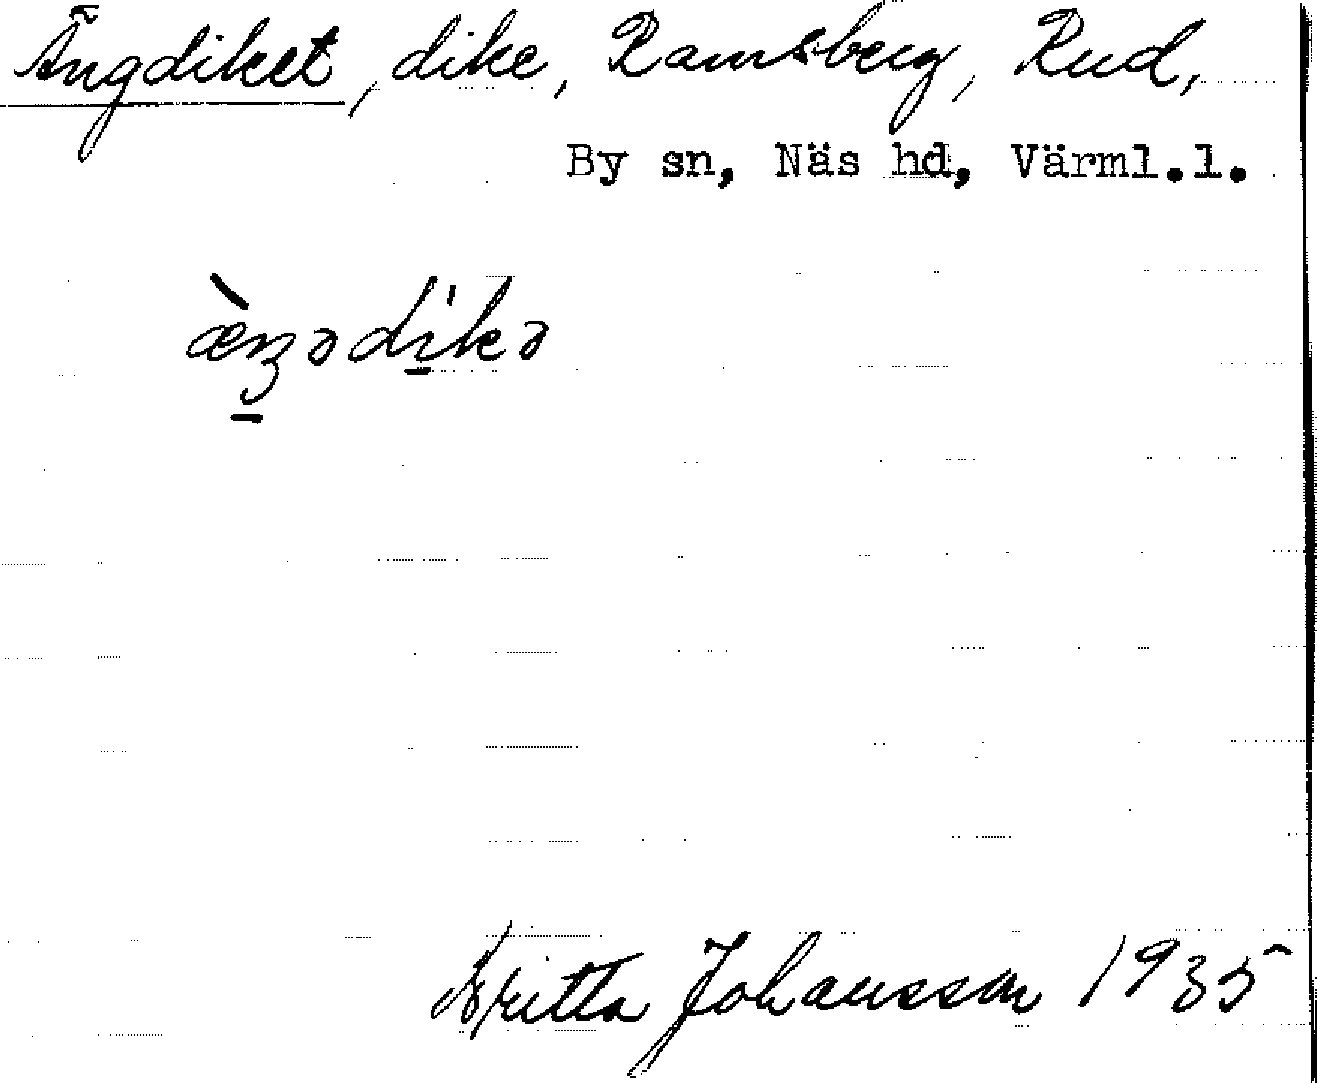 Ängdiket, dike, Ramsberg, Rud,
By sn, Näs hd, Värml.l.
æ̀ŋədikə
Britta Johansson 1935